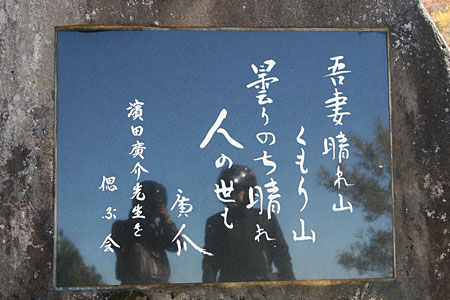 吾妻晴れ山
くもり山
曇りのち晴れ
人の世も
廣介
濱田廣介先生を
偲ぶ会